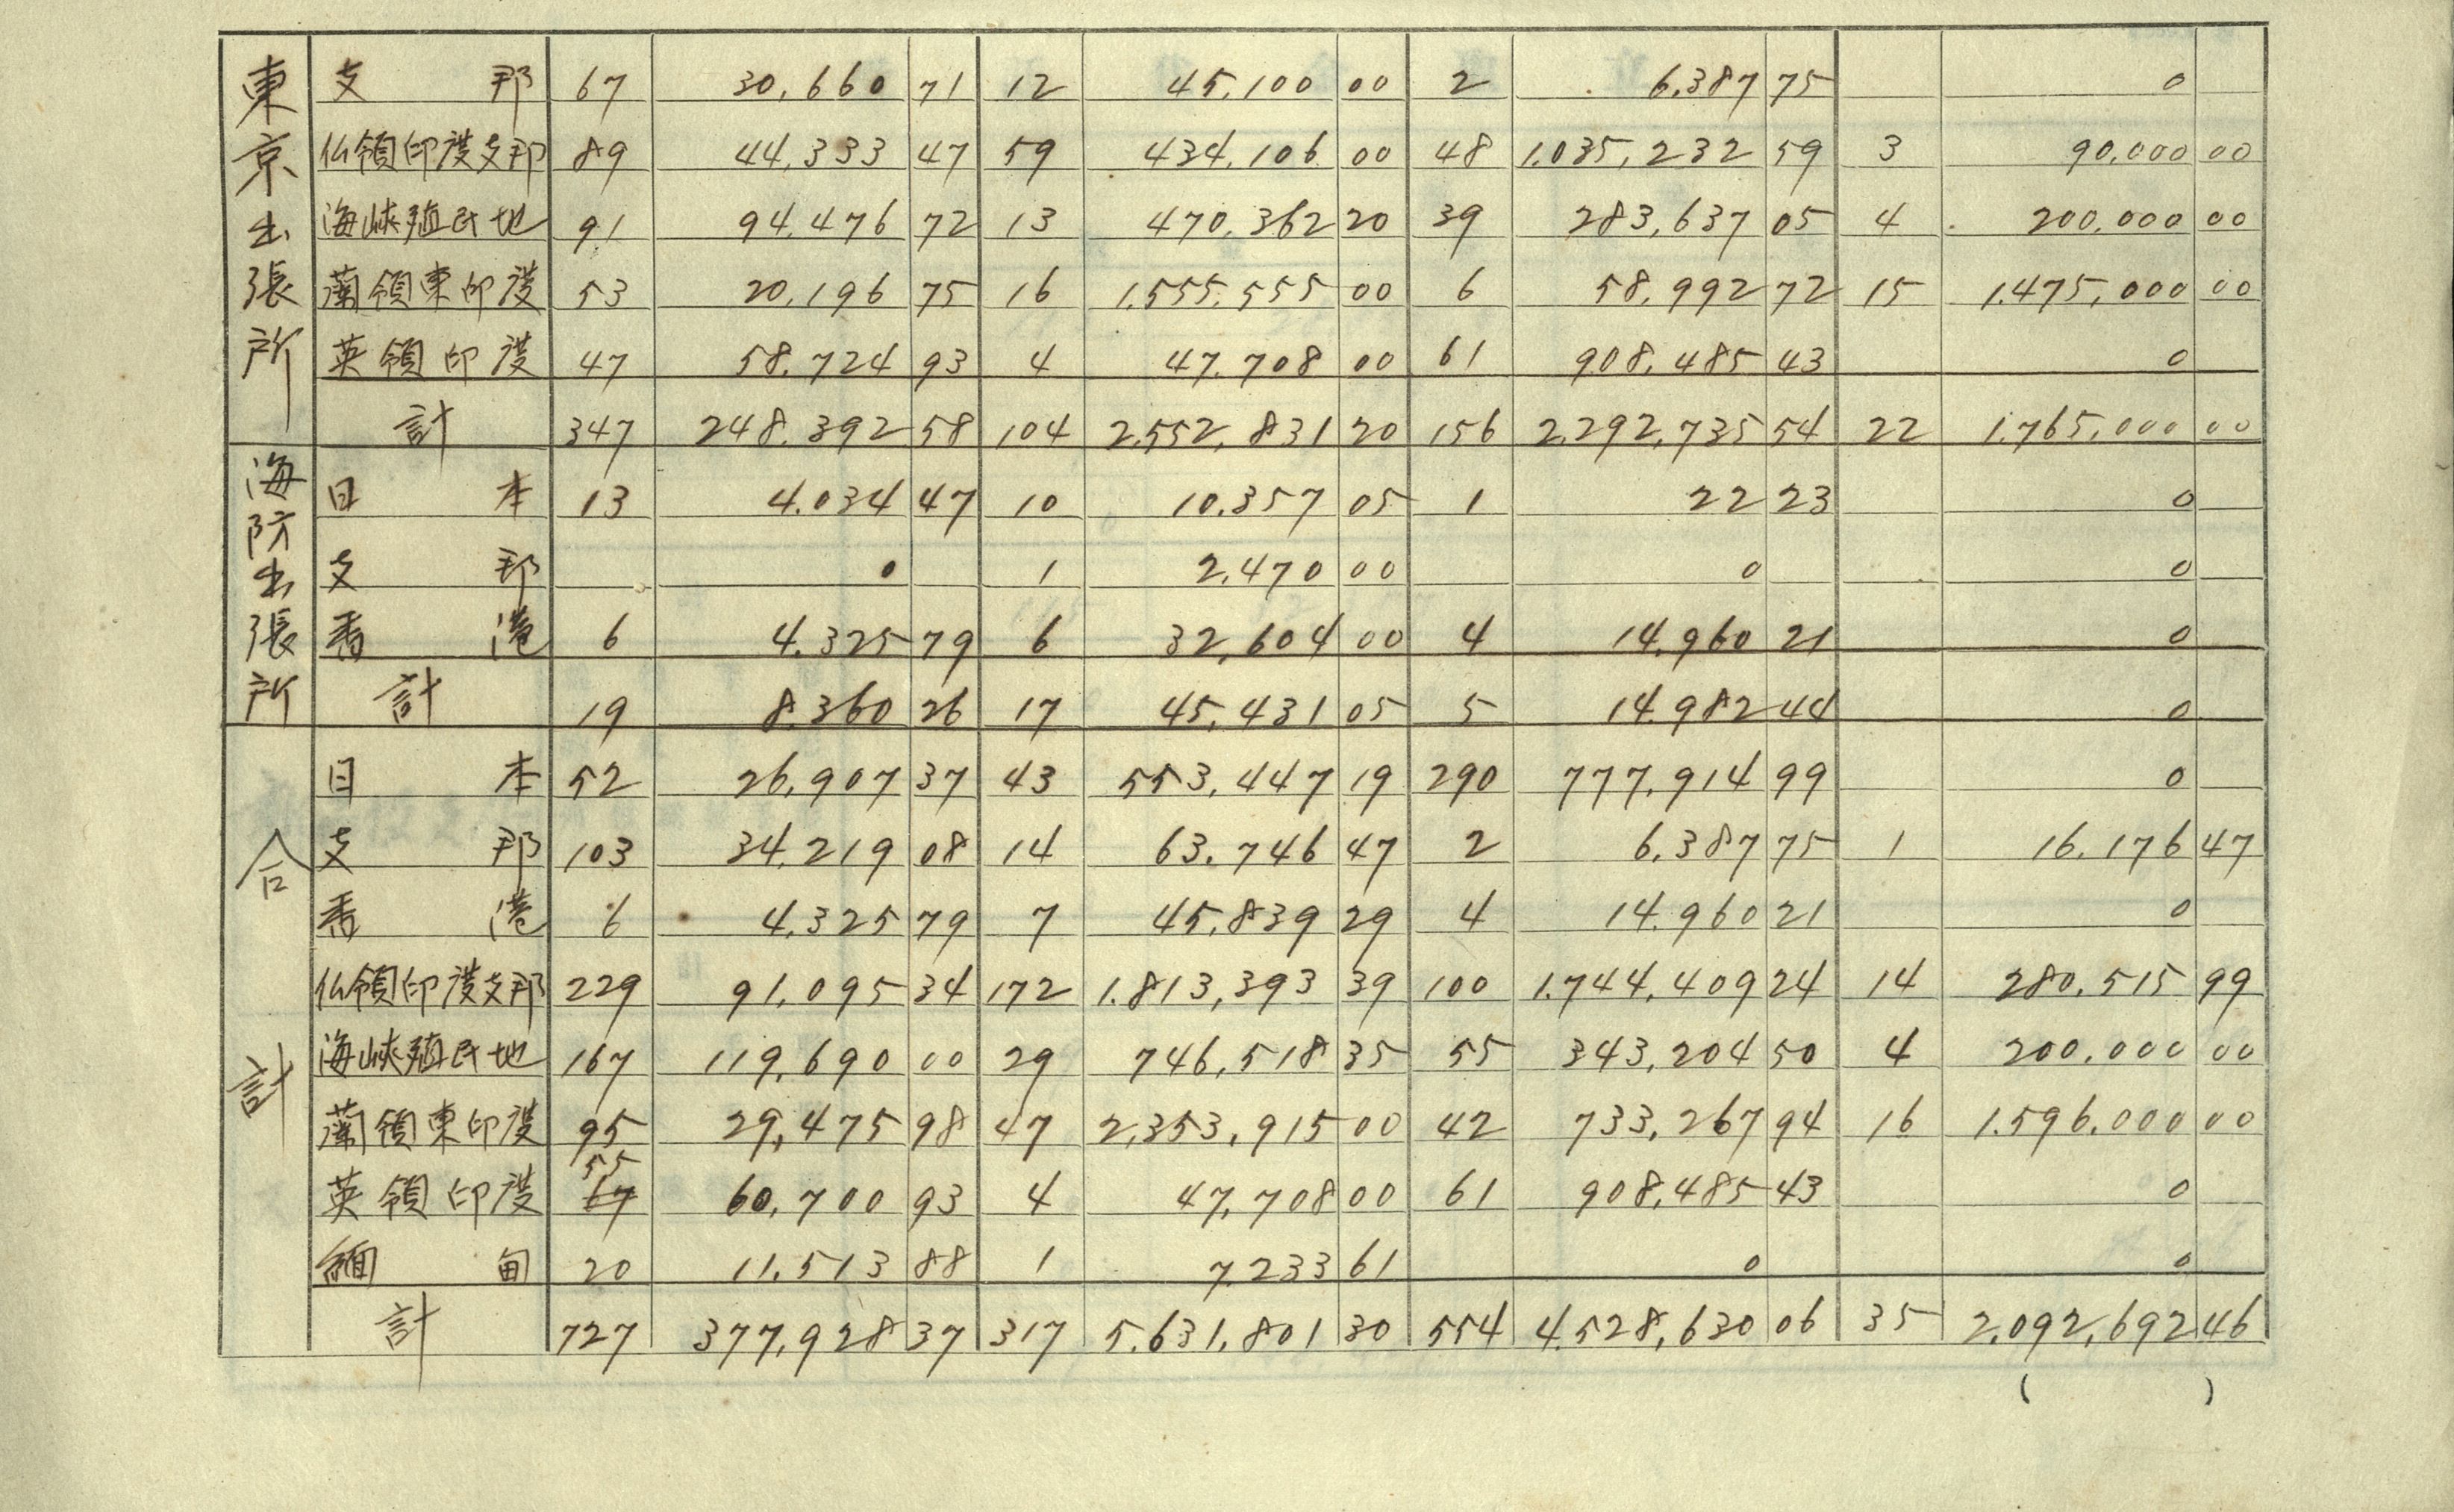 東京出張所
支那 67 30,660 71 12 45,100 00 2 6,387 75 0
仏領印度支那 89 44,333 47 59 434,106 00 48 1,035,232 59 3 90,000 00
海峡殖民地 91 94,476 72 13 470,362 20 39 283,637 05 4 200,000 00
蘭領東印度 53 20,196 75 16 1,555,555 00 6 58,992 72 15 1,475,000 00
英領印度 47 58,724 93 4 47,708 00 61 908,485 43 0
計 347 248,392 58 104 2,552,831 20 156 2,292,735 54 22 1,765,000 00
海防出張所
日本 13 4,034 47 10 10,357 05 1 22 23 0
支那 0 1 2,470 00 0 0
香港 6 4,325 79 6 32,604 00 4 14,960 21 0
計 19 8,360 26 17 45,431 05 5 14,982 44 0
合計
日本 52 26,907 37 43 553,447 19 290 777,914 99 0
支那 103 34,219 08 14 63,746 47 2 6,387 75 1 16,176 47
香港 6 4,325 79 7 45,839 29 4 14,960 21 0
仏領印度支那 229 91,095 34 172 1,813,393 39 100 1,744,409 24 14 280,515 99
海峡殖民地 167 119,690 00 29 746,518 35 55 343,204 50 4 200,000 00
蘭領東印度 95 29,475 98 47 2,353,915 00 42 733,267 94 16 1,596,000 00
英領印度 55 67 60,700 93 4 47,708 00 61 908,485 43 0
緬甸 20 11,513 88 1 7,233 61 0 0
計 727 377,928 37 317 5,631,801 30 554 4,528,630 06 35 2,092,692 46
( )